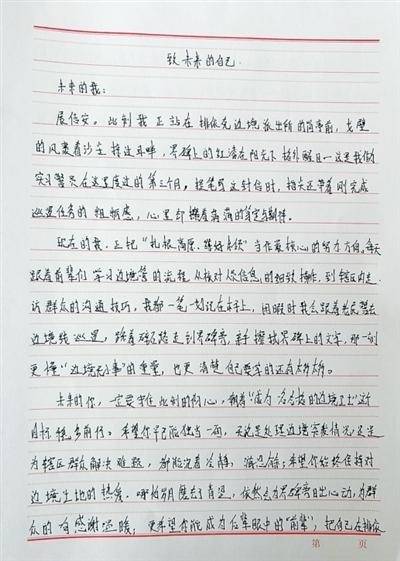 致未来的自己
未来的我:
展信安。此刻我正站在排依克边境派出所的岗亭前,戈壁
的风裹着沙尘掠过耳畔,界碑上的红漆在阳光下格外醒目—这是我做
实习警员在这里度过的第三个月。提笔写这封信时,指尖还带着刚完成
巡逻任务的粗糙感,心里却揣着满满的笃定与期待。
现在的我,正把“扎根高原、 ”当作最核心的努力方向。每天
跟着前辈们学习边境警务流程,从核对 信息的细致操作,到辖区内走
访群众的沟通技巧,我都一笔一划记在本子上,闲暇时我会跟着老民警去
边境线巡逻,踩着碎石路走到界碑旁,亲手擦拭界碑上的文字,那一刻
更懂“边境无小事”的重量,也更清楚自己要学的还有太多太多。
未来的你,一定要守住此刻的初心,朝着“成为合格的边境卫士”这个
目标稳步前行。希望你早已能独当一面,无论是处理边境突发情况,还是
为辖区群众解决难题,都能沉着冷静、 ;希望你始终保持对
边境土地的热爱,哪怕岁月磨去了青涩,依然会为界碑旁日出心动,为群
众的一句感谢温暖,更希望你能成为后辈眼中的“前辈”,把自己在排依
第 页